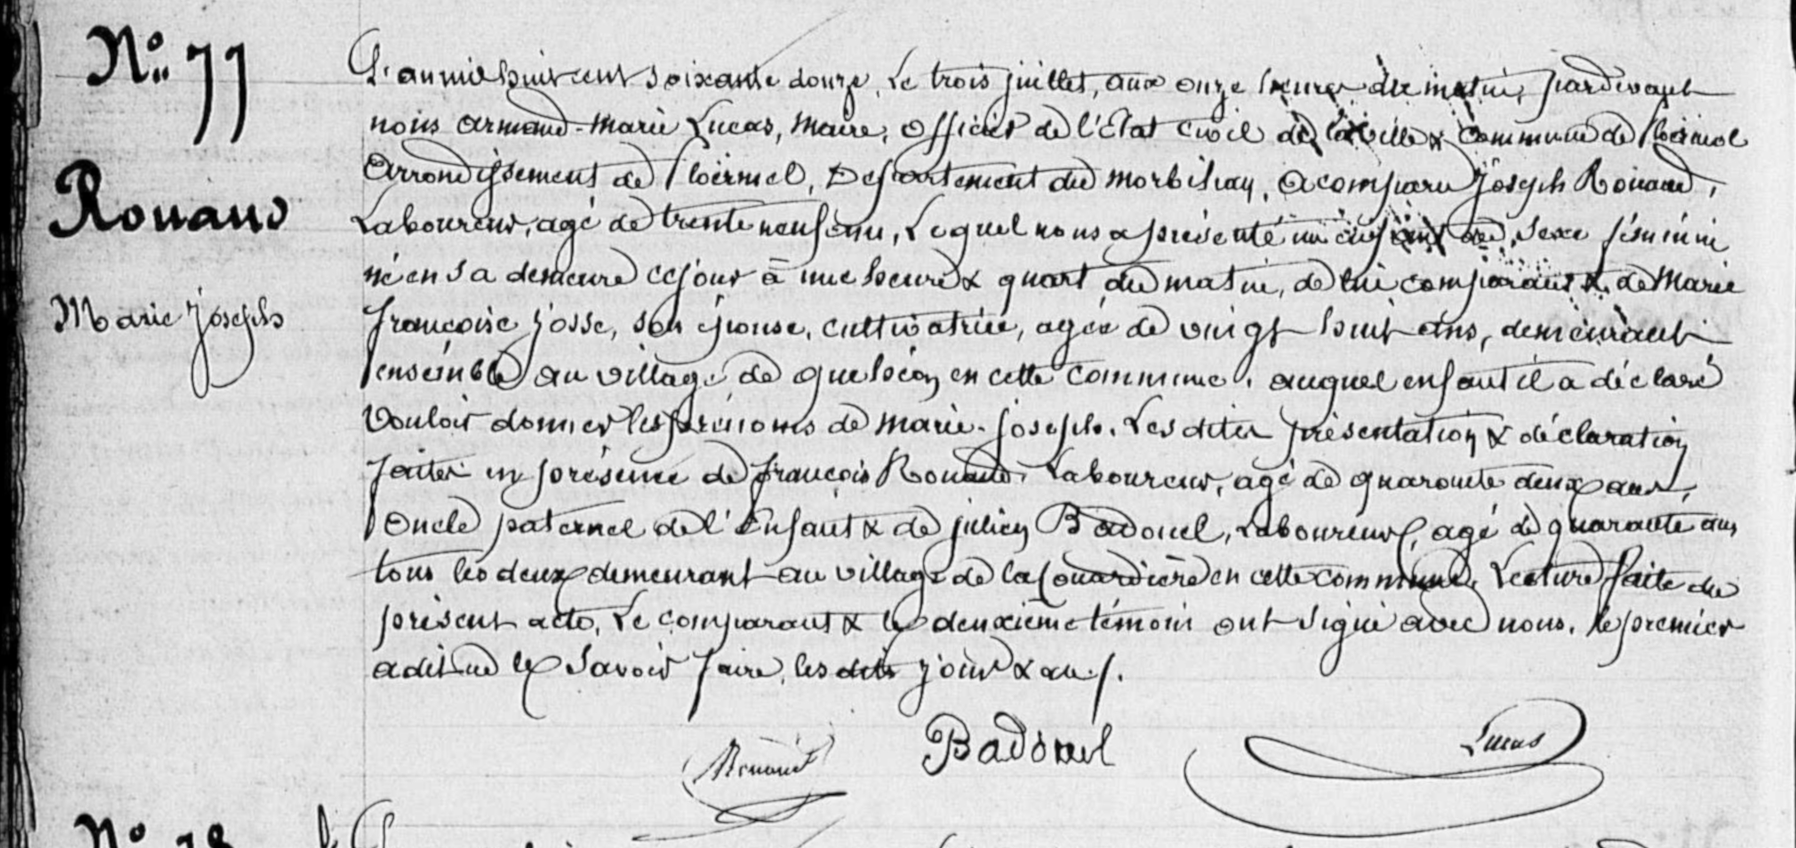 N° 77
Rouaud
Marie Joseph
L'an mil huit cent soixante douze, Le trois juillet, aux onze heures du matin, pardevant
nous Armand-Marie Lucas, Maire, Officier de l'Etat Civil de la ville & Commune de Ploërmel
Arrondissement de Ploërmel, Département du Morbihan, a comparu Joseph Rouaud,
Laboureur, agé de trente neuf ans, Lequel nous a présenté un enfant de sexe féminin
né en sa demeure ce jour à une heure & quart du matin, de lui comparant & de Marie
Françoise Josse, son épouse, cultivatrice, agée de vingt huit ans, demeurant
ensemble au village de en cette commune, auquel enfant il a déclaré
vouloir donner les prénoms de Marie-Joseph. Les dites présentation & déclaration
faites en présence de François Rouaud, Laboureur, agé de quarante deux ans,
Oncle paternel de l'Enfant & de Julien Badouel, Laboureur, agé de quarante ans
tous les deux demeurant au village de en cette commune, Lecture faite du
présent acte, Le comparant & le deuxième témoin ont signé avec nous, le premier
a dit ne le savoir faire, les dits jour & an /.
Rouaud Badouel Lucas
N° 78